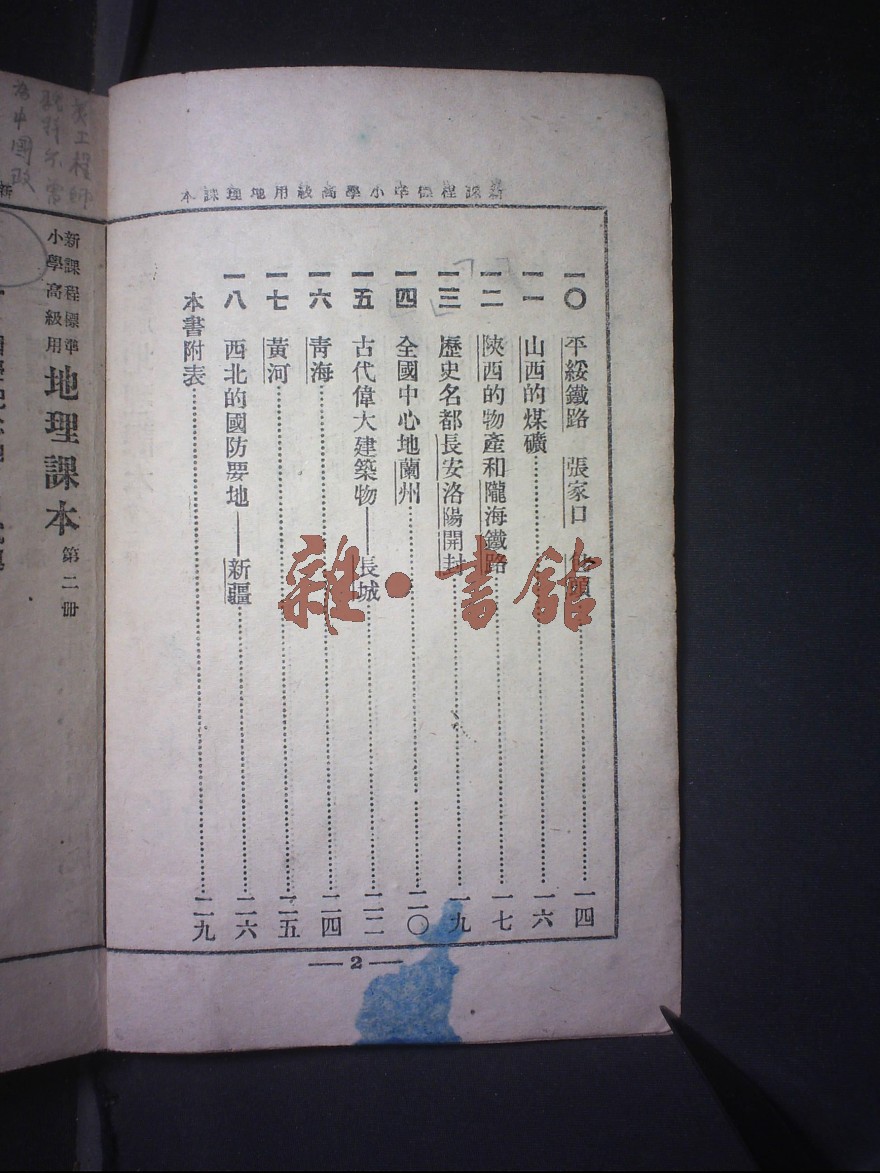 新課程標準小學高級用地理課本
一〇 平綏鐵路 張家口 包頭 一四
一一 山西的煤礦 一六
一二 陝西的物產和隴海鐵路 一七
一三 歷史名都長安洛陽開封 一九
一四 全國中心地蘭州 二〇
一五 古代偉大建築物——長城 二二
一六 青海 二四
一七 黃河 二五
一八 西北的國防要地——新疆 二六
本書附表 二九
—2—
雜·書館
新課程標準
小學高級用
地理課本 第二冊
工程師
為中國政
新